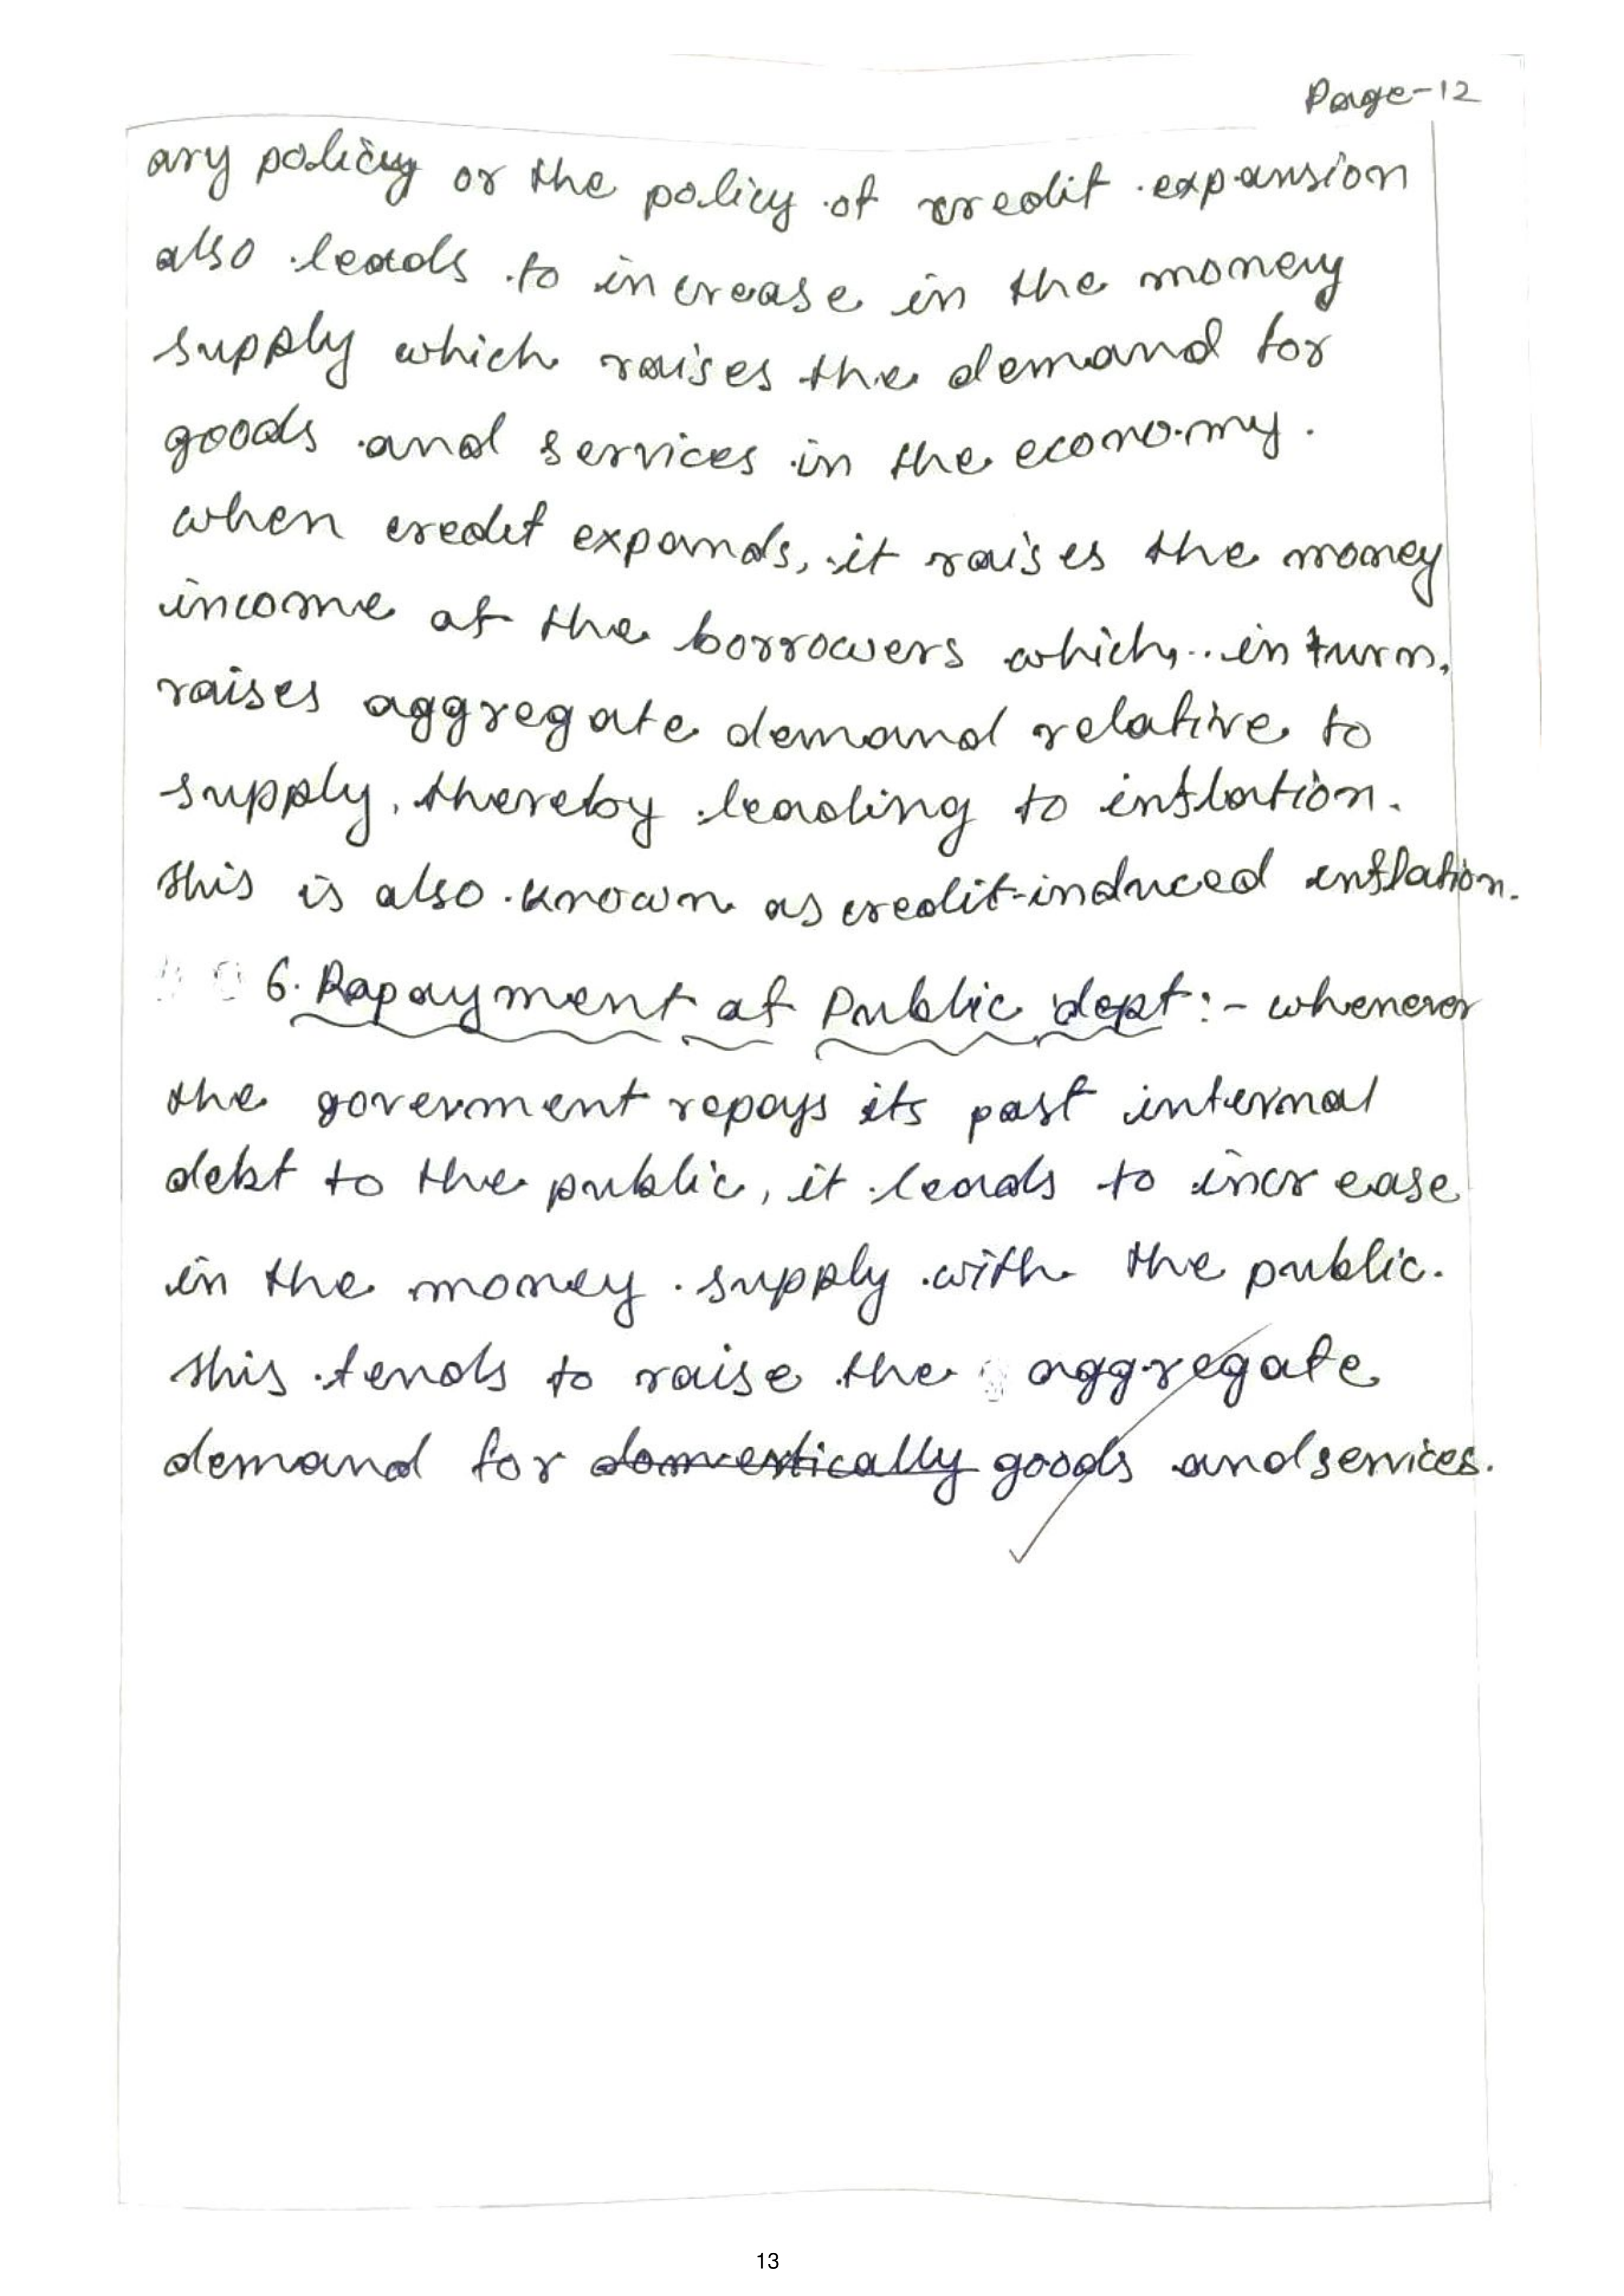 Page-12
ary policy or the policy of credit expansion
also leads to increase in the money
supply which raises the demand for
goods and services in the economy.
when credit expands, it raises the money
income of the borrowers which, in turn,
raises aggregate demand relative to
supply, thereby leading to inflation.
this is also known as credit-induced inflation.
6. Rapayment of Public dept:- whenever
the goverment repays its past internal
debt to the public, it leads to increase
in the money supply with the public.
this tends to raise the aggregate
demand for domestically goods and services.
13